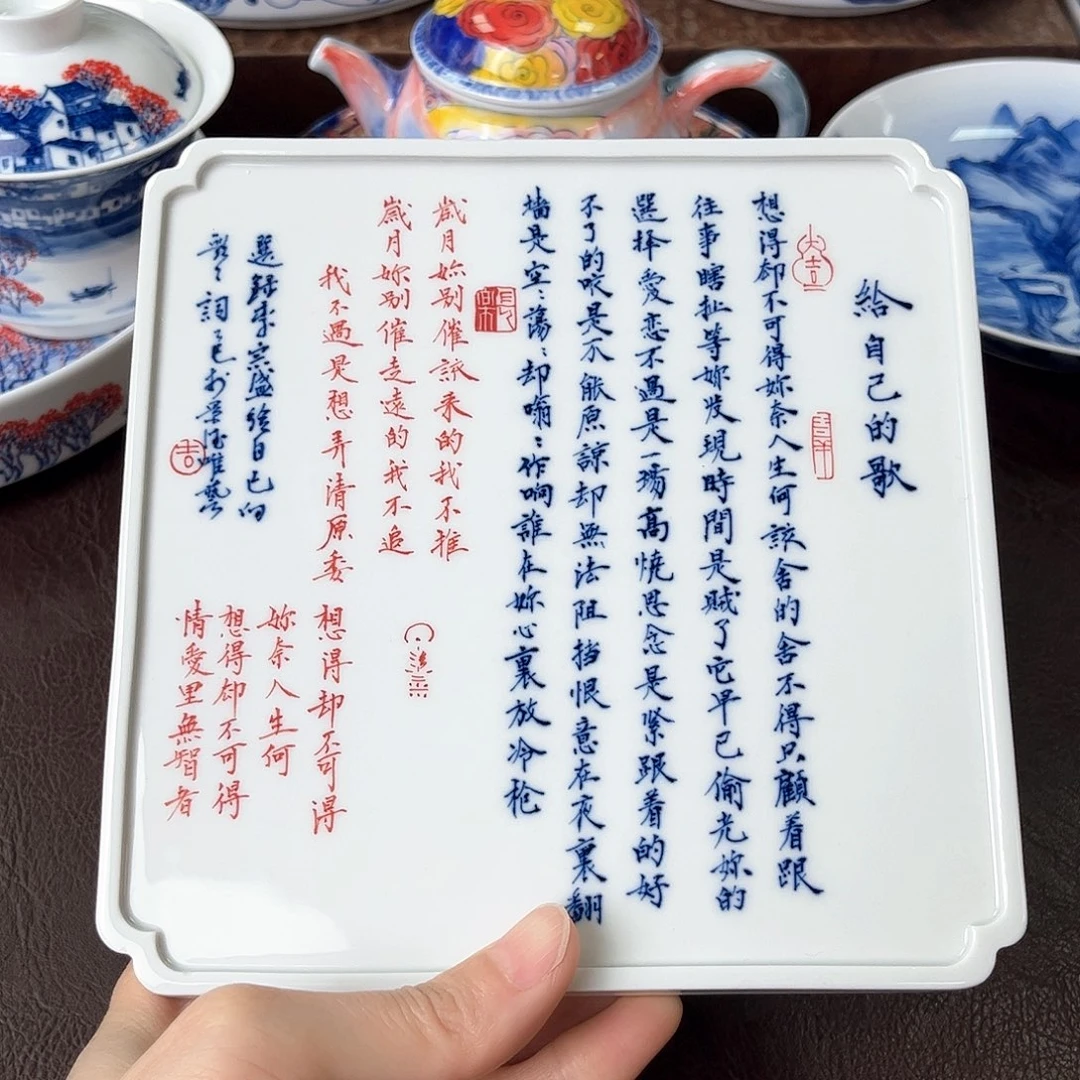 給自己的歌
大吉
吉羊
想得却不可得妳奈人生何該舍的舍不得只顧着跟
往事瞎扯等妳发現時間是贼了它早已偷光妳的
選择愛恋不過是一場高燒思念是紧跟着的好
不了的咳是不能原諒却無法阻挡恨意在夜裏翻
墙是空:荡:却嗡:作响誰在妳心裏放冷枪
長樂
歲月妳别催該来的我不推
歲月妳别催走遠的我不追
我不過是想弄清原委
想得却不可得
妳奈人生何
想得却不可得
情愛里無智者
選録李宗盛给自己的
歌之詞乙巳於景德唯藝
吉